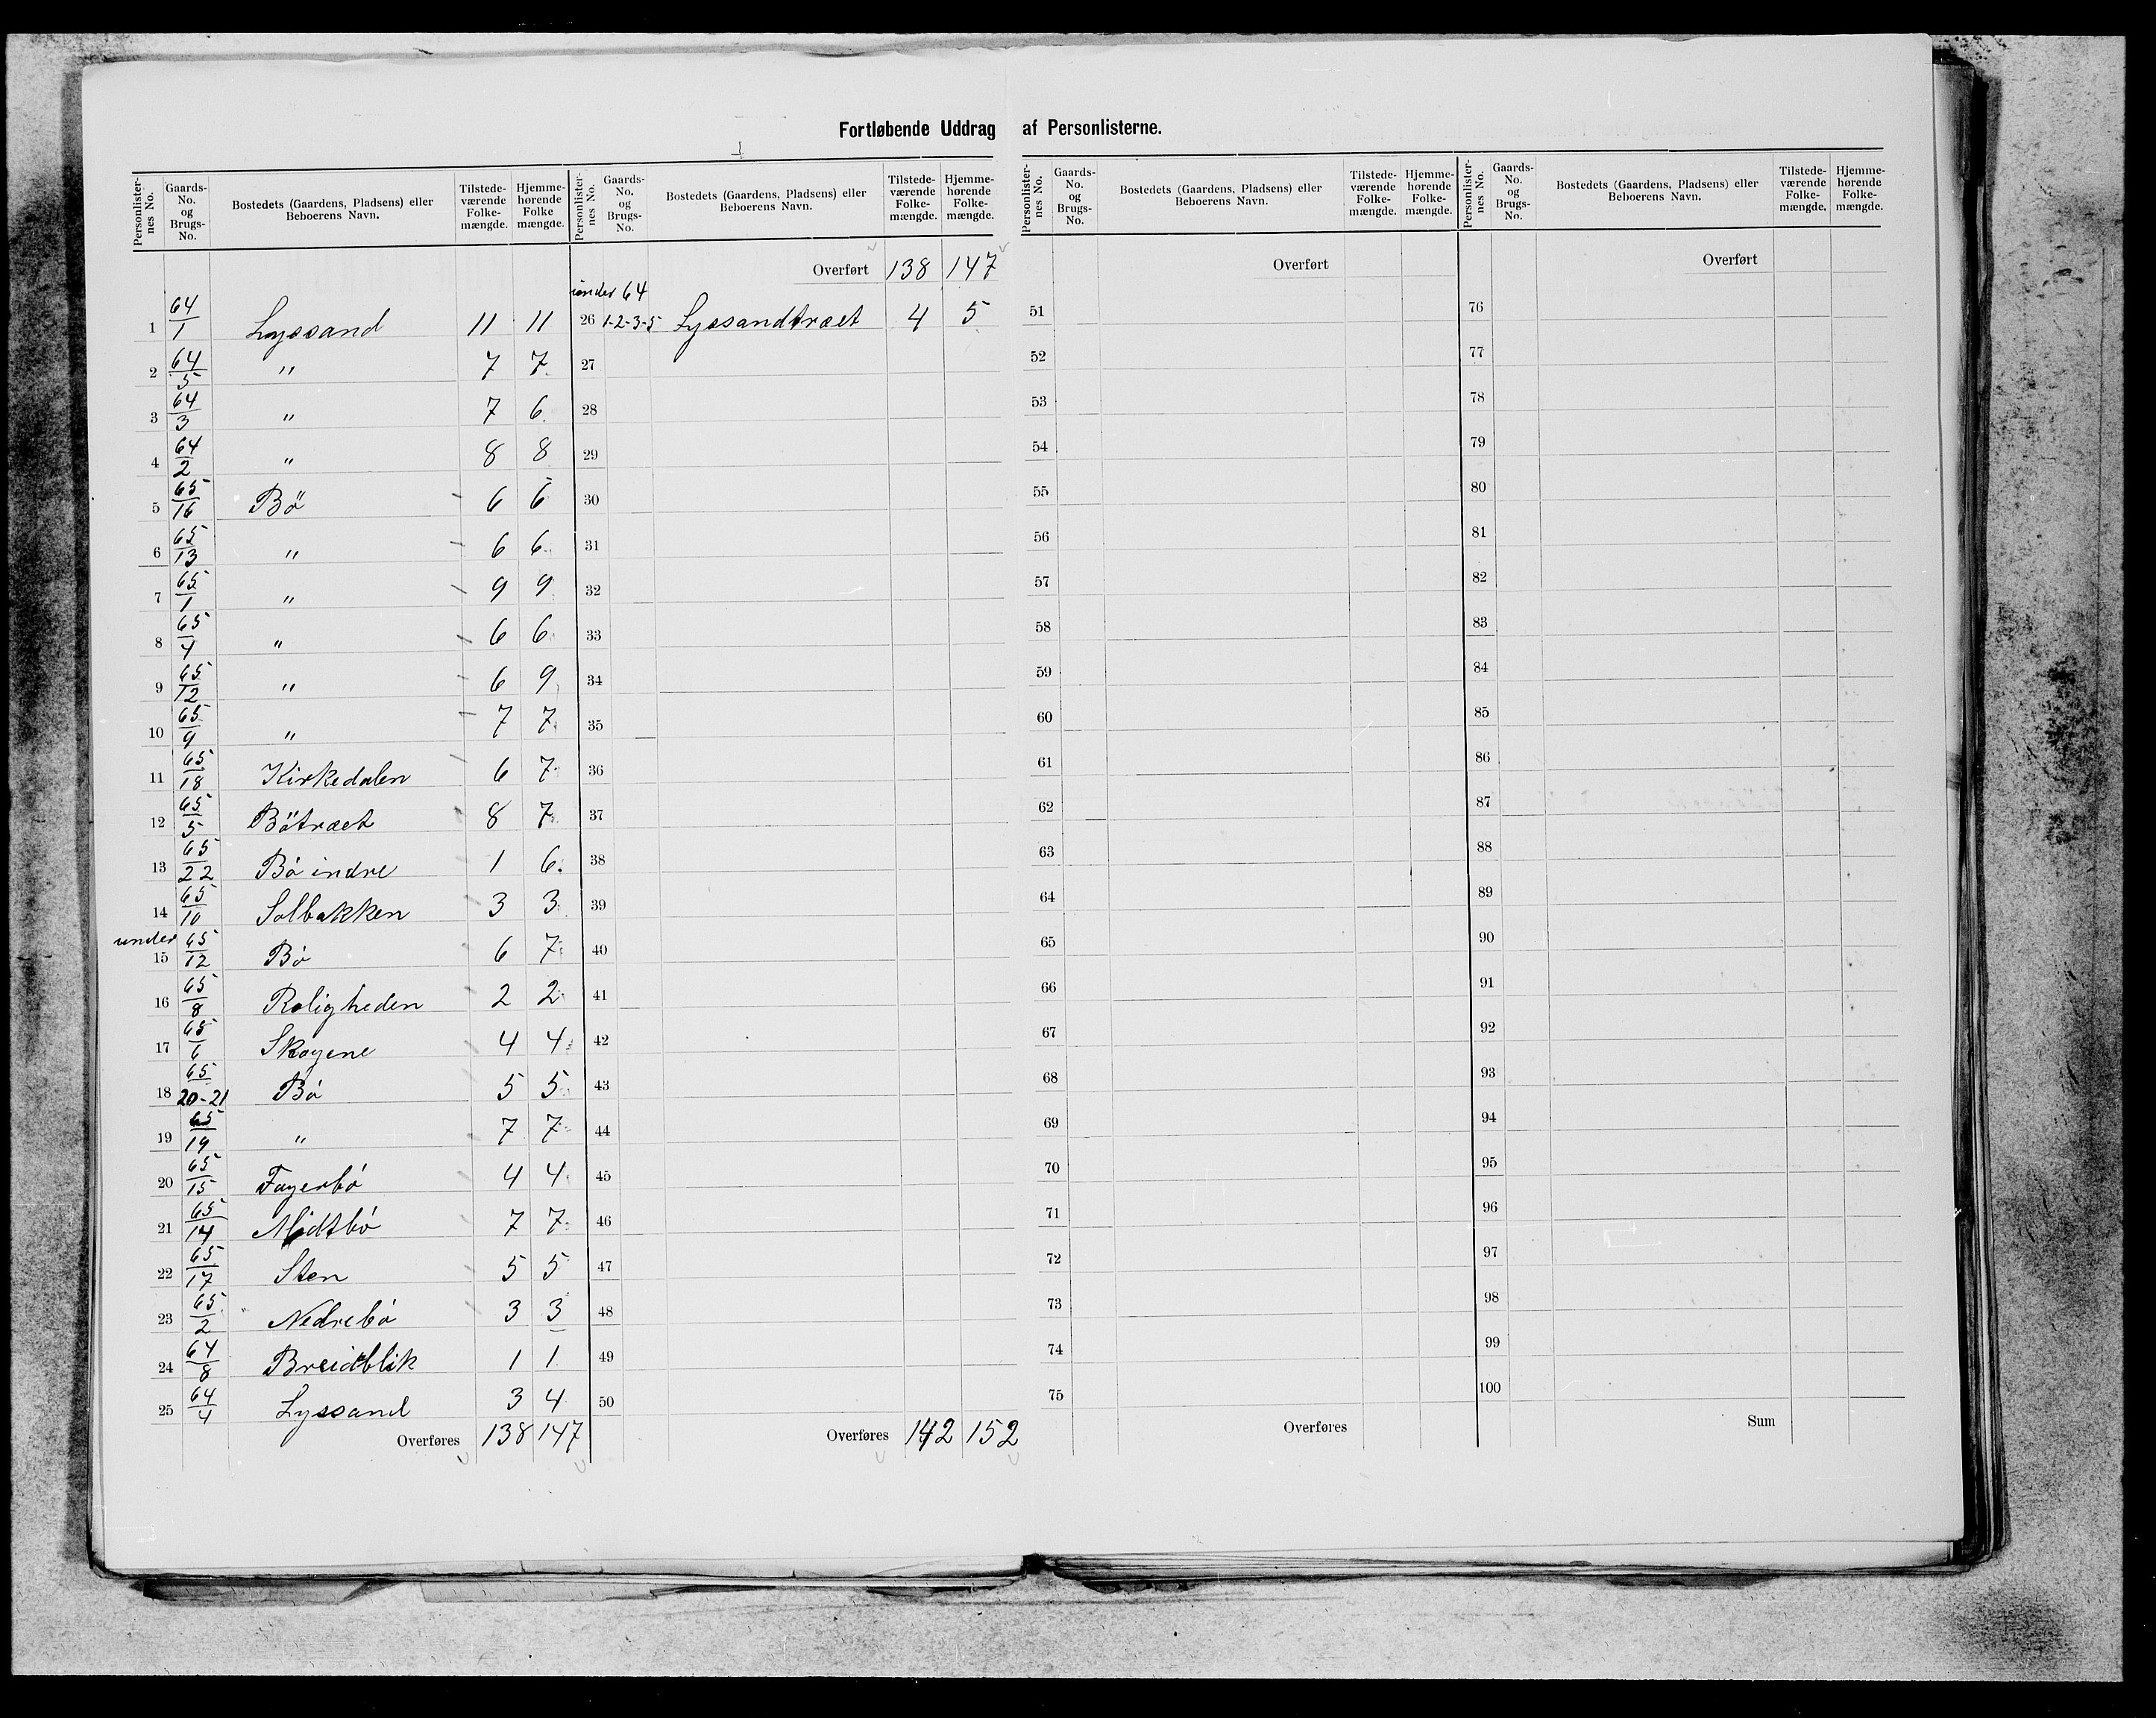 Fortløbende Uddrag af Personlisterne.
Personlister-nes No. | Gaards-No. og Brugs-No. | Bostedets (Gaardens, Pladsens) eller Beboerens Navn. | Tilstede-værende Folke-mængde. | Hjemme-hørende Folke mængde.
1 64/1 Lyssand 11 11
2 64/5 " 7 7
3 64/3 " 7 6
4 64/2 " 8 8
5 65/16 Bö 6 6
6 65/13 " 6 6
7 65/1 " 9 9
8 65/4 " 6 6
9 65/12 " 6 9
10 65/9 " 7 7
11 65/18 Kirkedalen 6 7
12 65/5 Bötræet 8 7
13 65/22 Bö indre 1 6
14 65/10 Solbakken 3 3
15 under 65/12 Bö 6 7
16 65/8 Roligheden 2 2
17 65/6 Skogene 4 4
18 65/20-21 Bö 5 5
19 65/19 " 7 7
20 65/15 Fagerbö 4 4
21 65/14 Midtbö 7 7
22 65/17 Sten 5 5
23 65/2 Nedrebö 3 3
24 64/8 Breidblik 1 1
25 64/4 Lyssand 3 4
Overføres 138 147
Personlister-nes No. | Gaards-No. og Brugs-No. | Bostedets (Gaardens, Pladsens) eller Beboerens Navn. | Tilstede-værende Folke-mængde. | Hjemme-hørende Folke-mængde.
Overført 138 147
under 64
26 1-2-3-5 Lyssandtræet 4 5
27
28
29
30
31
32
33
34
35
36
37
38
39
40
41
42
43
44
45
46
47
48
49
50
Overføres 142 152
Personlister-nes No. | Gaards-No. og Brugs-No. | Bostedets (Gaardens, Pladsens) eller Beboerens Navn. | Tilstede-værende Folke-mængde. | Hjemme-hørende Folke-mængde.
Overført
51
52
53
54
55
56
57
58
59
60
61
62
63
64
65
66
67
68
69
70
71
72
73
74
75
Overføres
Personlister-nes No. | Gaards-No. og Brugs-No. | Bostedets (Gaardens, Pladsens) eller Beboerens Navn. | Tilstede-værende Folke-mængde. | Hjemme-hørende Folke-mængde.
Overført
76
77
78
79
80
81
82
83
84
85
86
87
88
89
90
91
92
93
94
95
96
97
98
99
100
Sum